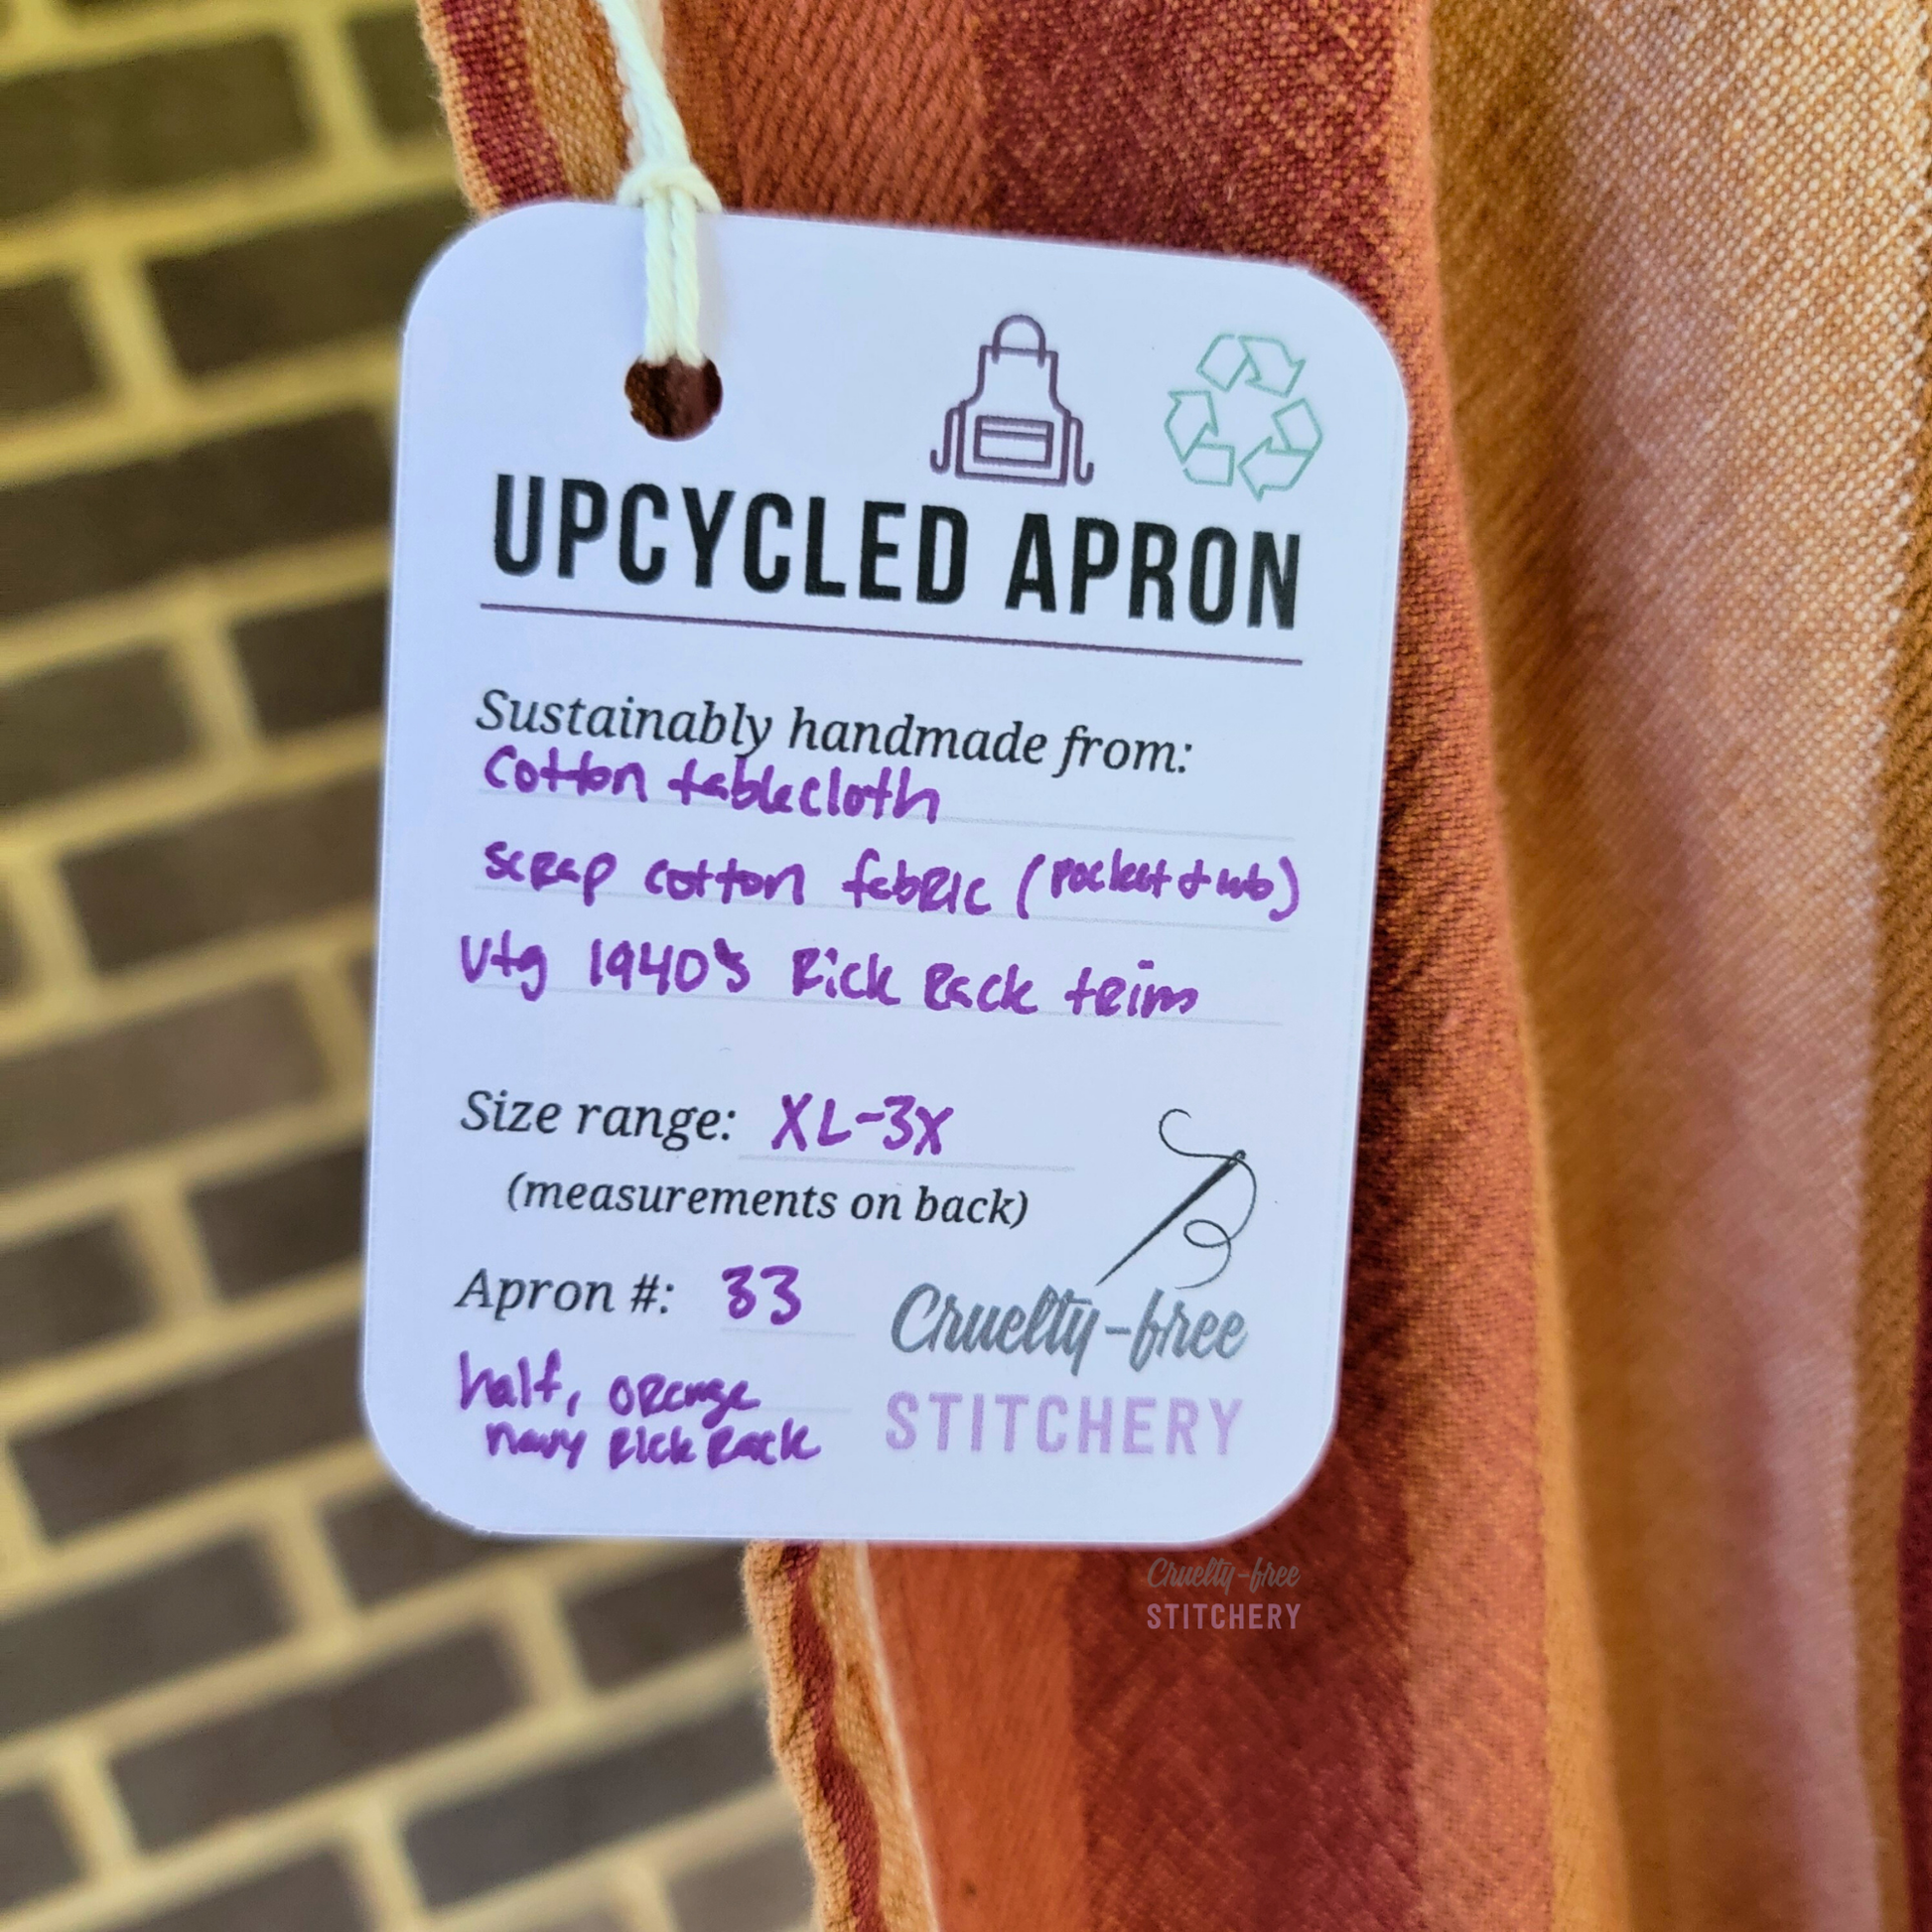 UPCYCLED APRON
Sustainably handmade from:
Cotton tablecloth
scrap cotton fabric (pocket &
Vtg 1940's Rick Rack trim
Size range: XL-3X
(measurements on back)
Apron #: 33
half, orange
navy Rick Rack
Cruelty-free
STITCHERY
Cruelty-free
STITCHERY